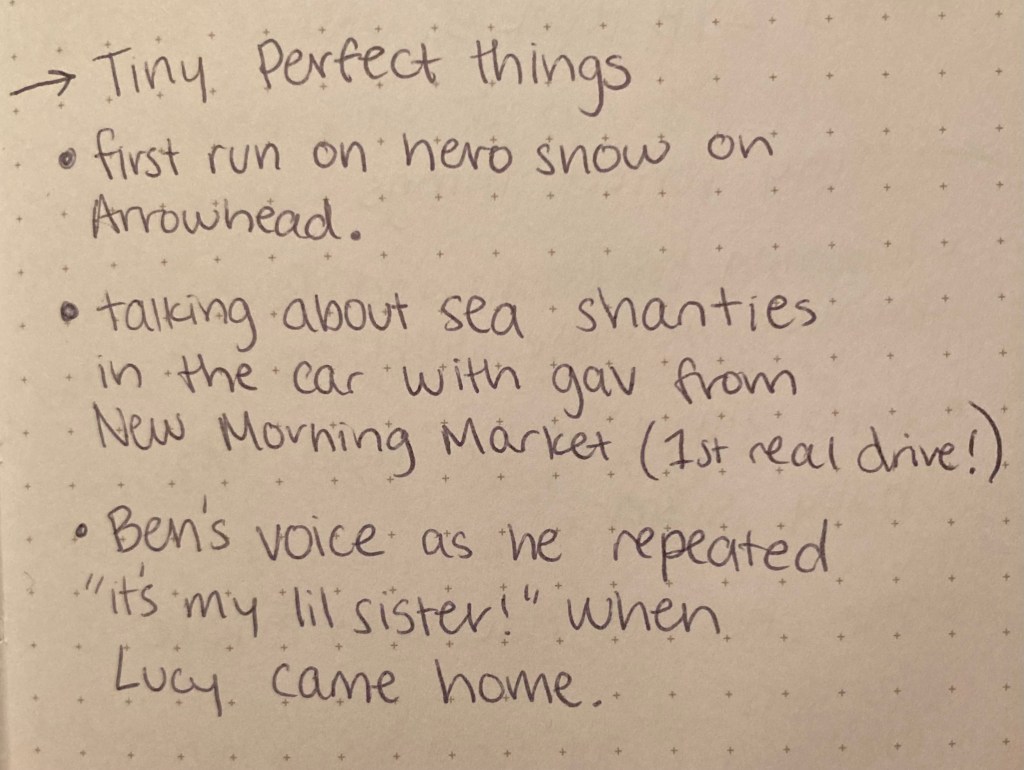 → Tiny Perfect things
• first run on hero snow on
Arrowhead.
• talking about sea shanties
in the car with gav from
New Morning Market (1st real drive!)
• Ben's voice as he repeated
"it's my lil sister!" when
Lucy came home.